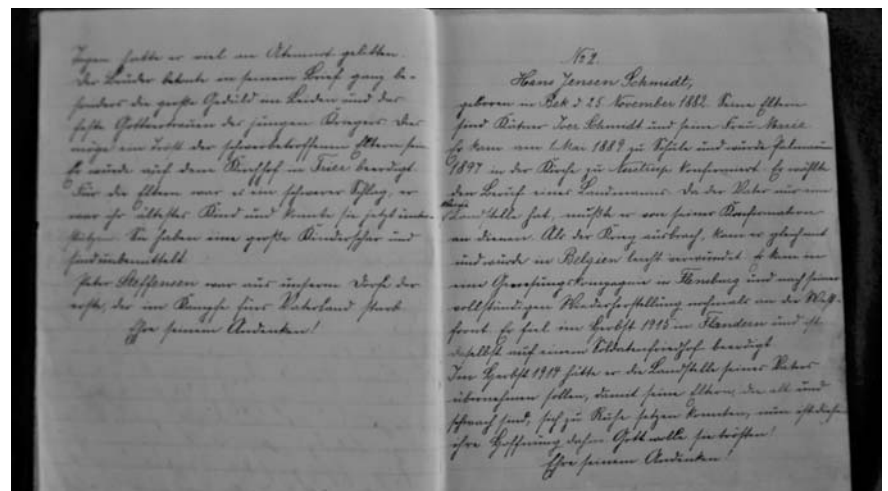 Tagen hatte er viel an Atemnot gelitten.
Der Bruder betonte in seinem Brief ganz be-
sonders die große Geduld im Leiden und das
feste Gottvertrauen des jungen Kriegers. Das
möge ein Trost der schwerbetroffenen Eltern sein.
Er wurde auf dem Kirchhof in beerdigt.
Für die Eltern war es ein schwerer Schlag, er
war ihr ältestes Kind und konnte sie jetzt unter-
stützen. Sie haben eine große Kinderschar und
sind unbemittelt.
Peter Steffensen war aus unserm Dorfe der
erste, der im Kampfe fürs Vaterland starb.
Ehre seinem Andenken!
No 2.
Hans Jensen Schmidt,
geboren in Bek d. 25. November 1882. Seine Eltern
sind Kätner Iver Schmidt und seine Frau Marie.
Er kam am 1. Mai 1889 zu Schule und wurde
1897 in der Kirche zu konfirmiert. Er wählte
den Beruf eines Landmanns. Da der Vater nur eine
Landstelle hat, mußte er von seiner Konfirmation
an dienen. Als der Krieg ausbrach, kam er gleich mit
und wurde in Belgien leicht verwundet. Er kam in
eine Genesungskompagnie in Flensburg und nach seiner
vollständigen Wiederherstellung nochmals an die West-
front. Er fiel im Herbst 1915 in Flandern und ist
daselbst auf einem Soldatenfriedhof beerdigt.
Im Herbst 1914 hätte er die Landstelle seines Vaters
übernehmen sollen, damit seine Eltern, die alt und
schwach sind, sich zu Ruhe setzen konnten, nun ist diese
ihre Hoffnung dahin. Gott wolle sie trösten!
Ehre seinem Andenken!